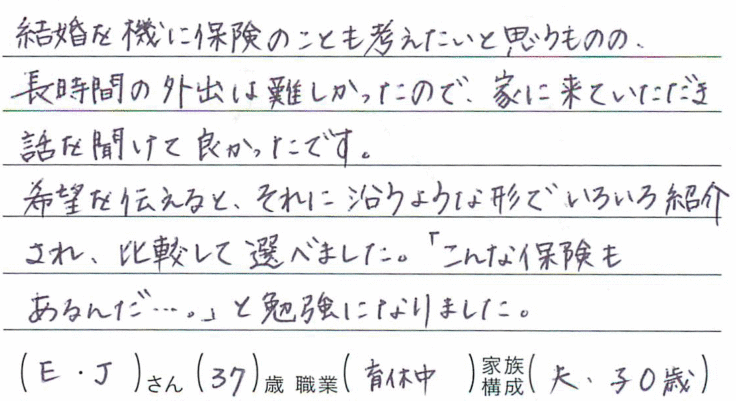 結婚を機に保険のことも考えたいと思うものの、
長時間の外出は難しかったので、家に来ていただき
話を聞けて良かったです。
希望を伝えると、それに沿うような形でいろいろ紹介
され、比較して選べました。「こんな保険も
あるんだ…。」と勉強になりました。
(E・J)さん(37)歳 職業(育休中)家族構成(夫、子0歳)